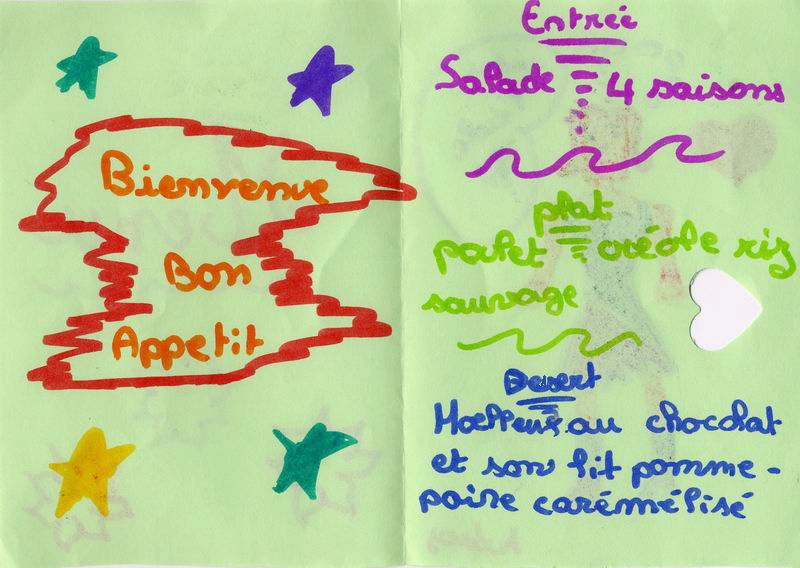 Bienvenue
Bon
Appetit
Entrée
Salade 4 saisons
plat
poulet créole riz
sauvage
Desert
Moelleux au chocolat
et son lit pomme-
poire carémélisé